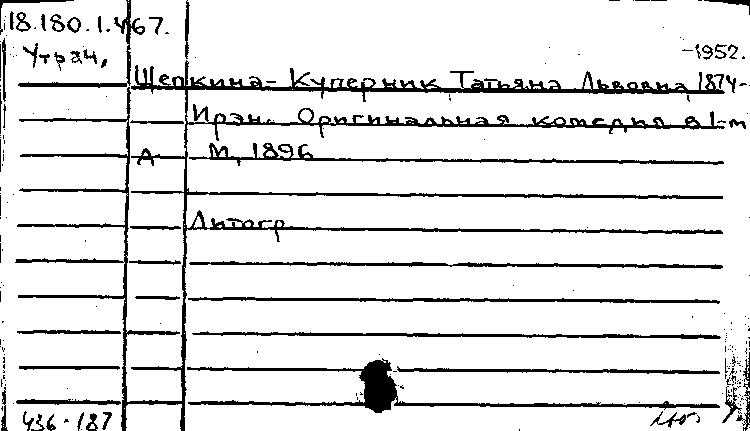 18.180.1.467.
Утрач,
-1952.
Щепкина-Куперник Татьяна Львовна 1874-
Ирэн. Оригинальная комедия в 1-м
А М, 1896
Литогр
436-187